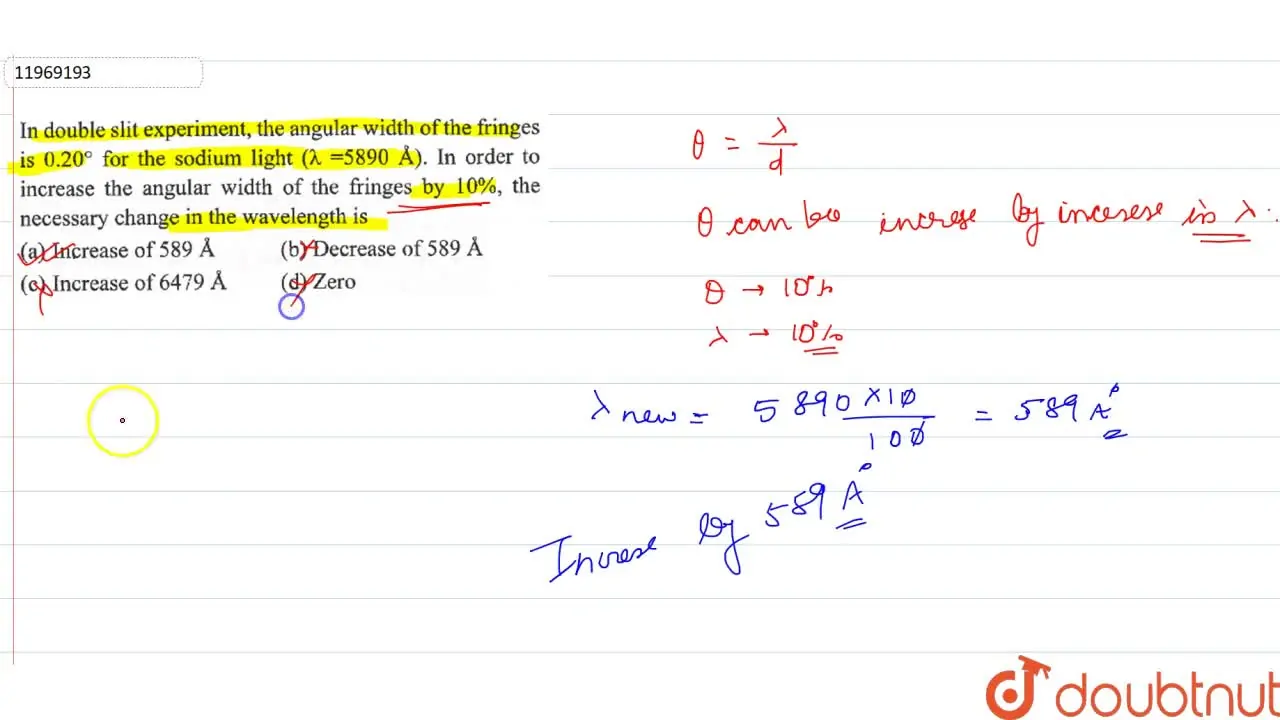 11969193
In double slit experiment, the angular width of the fringes
is 0.20° for the sodium light (λ =5890 Å). In order to
increase the angular width of the fringes by 10%, the
necessary change in the wavelength is
(a) Increase of 589 Å (b) Decrease of 589 Å
(c) Increase of 6479 Å (d) Zero
θ = λ/d
θ can be increse by incerese in λ.
θ → 10%
λ → 10%
λ new = 5890 × 10 / 100 = 589 A°
Increse by 589 A°
doubtnut